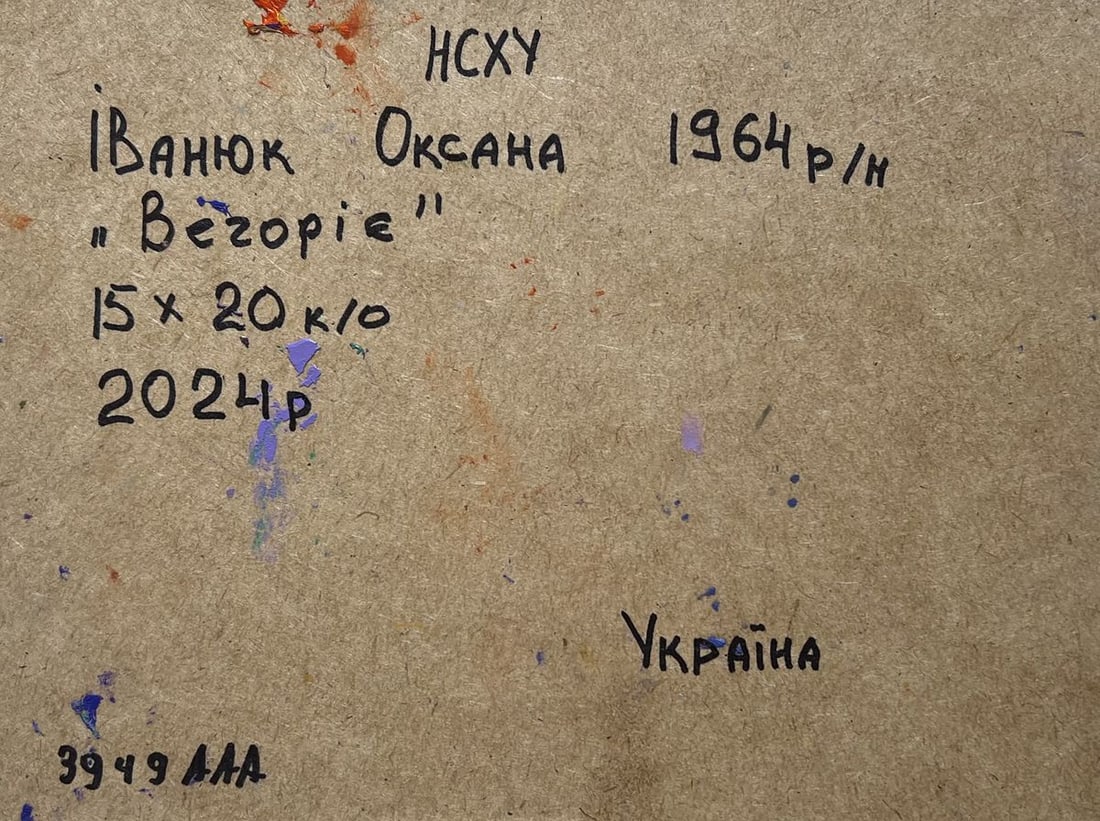 НСХУ
Іванюк Оксана 1964 р/н
„Вечоріє"
15 х 20 к/о
2024р
Україна
3949 ААА